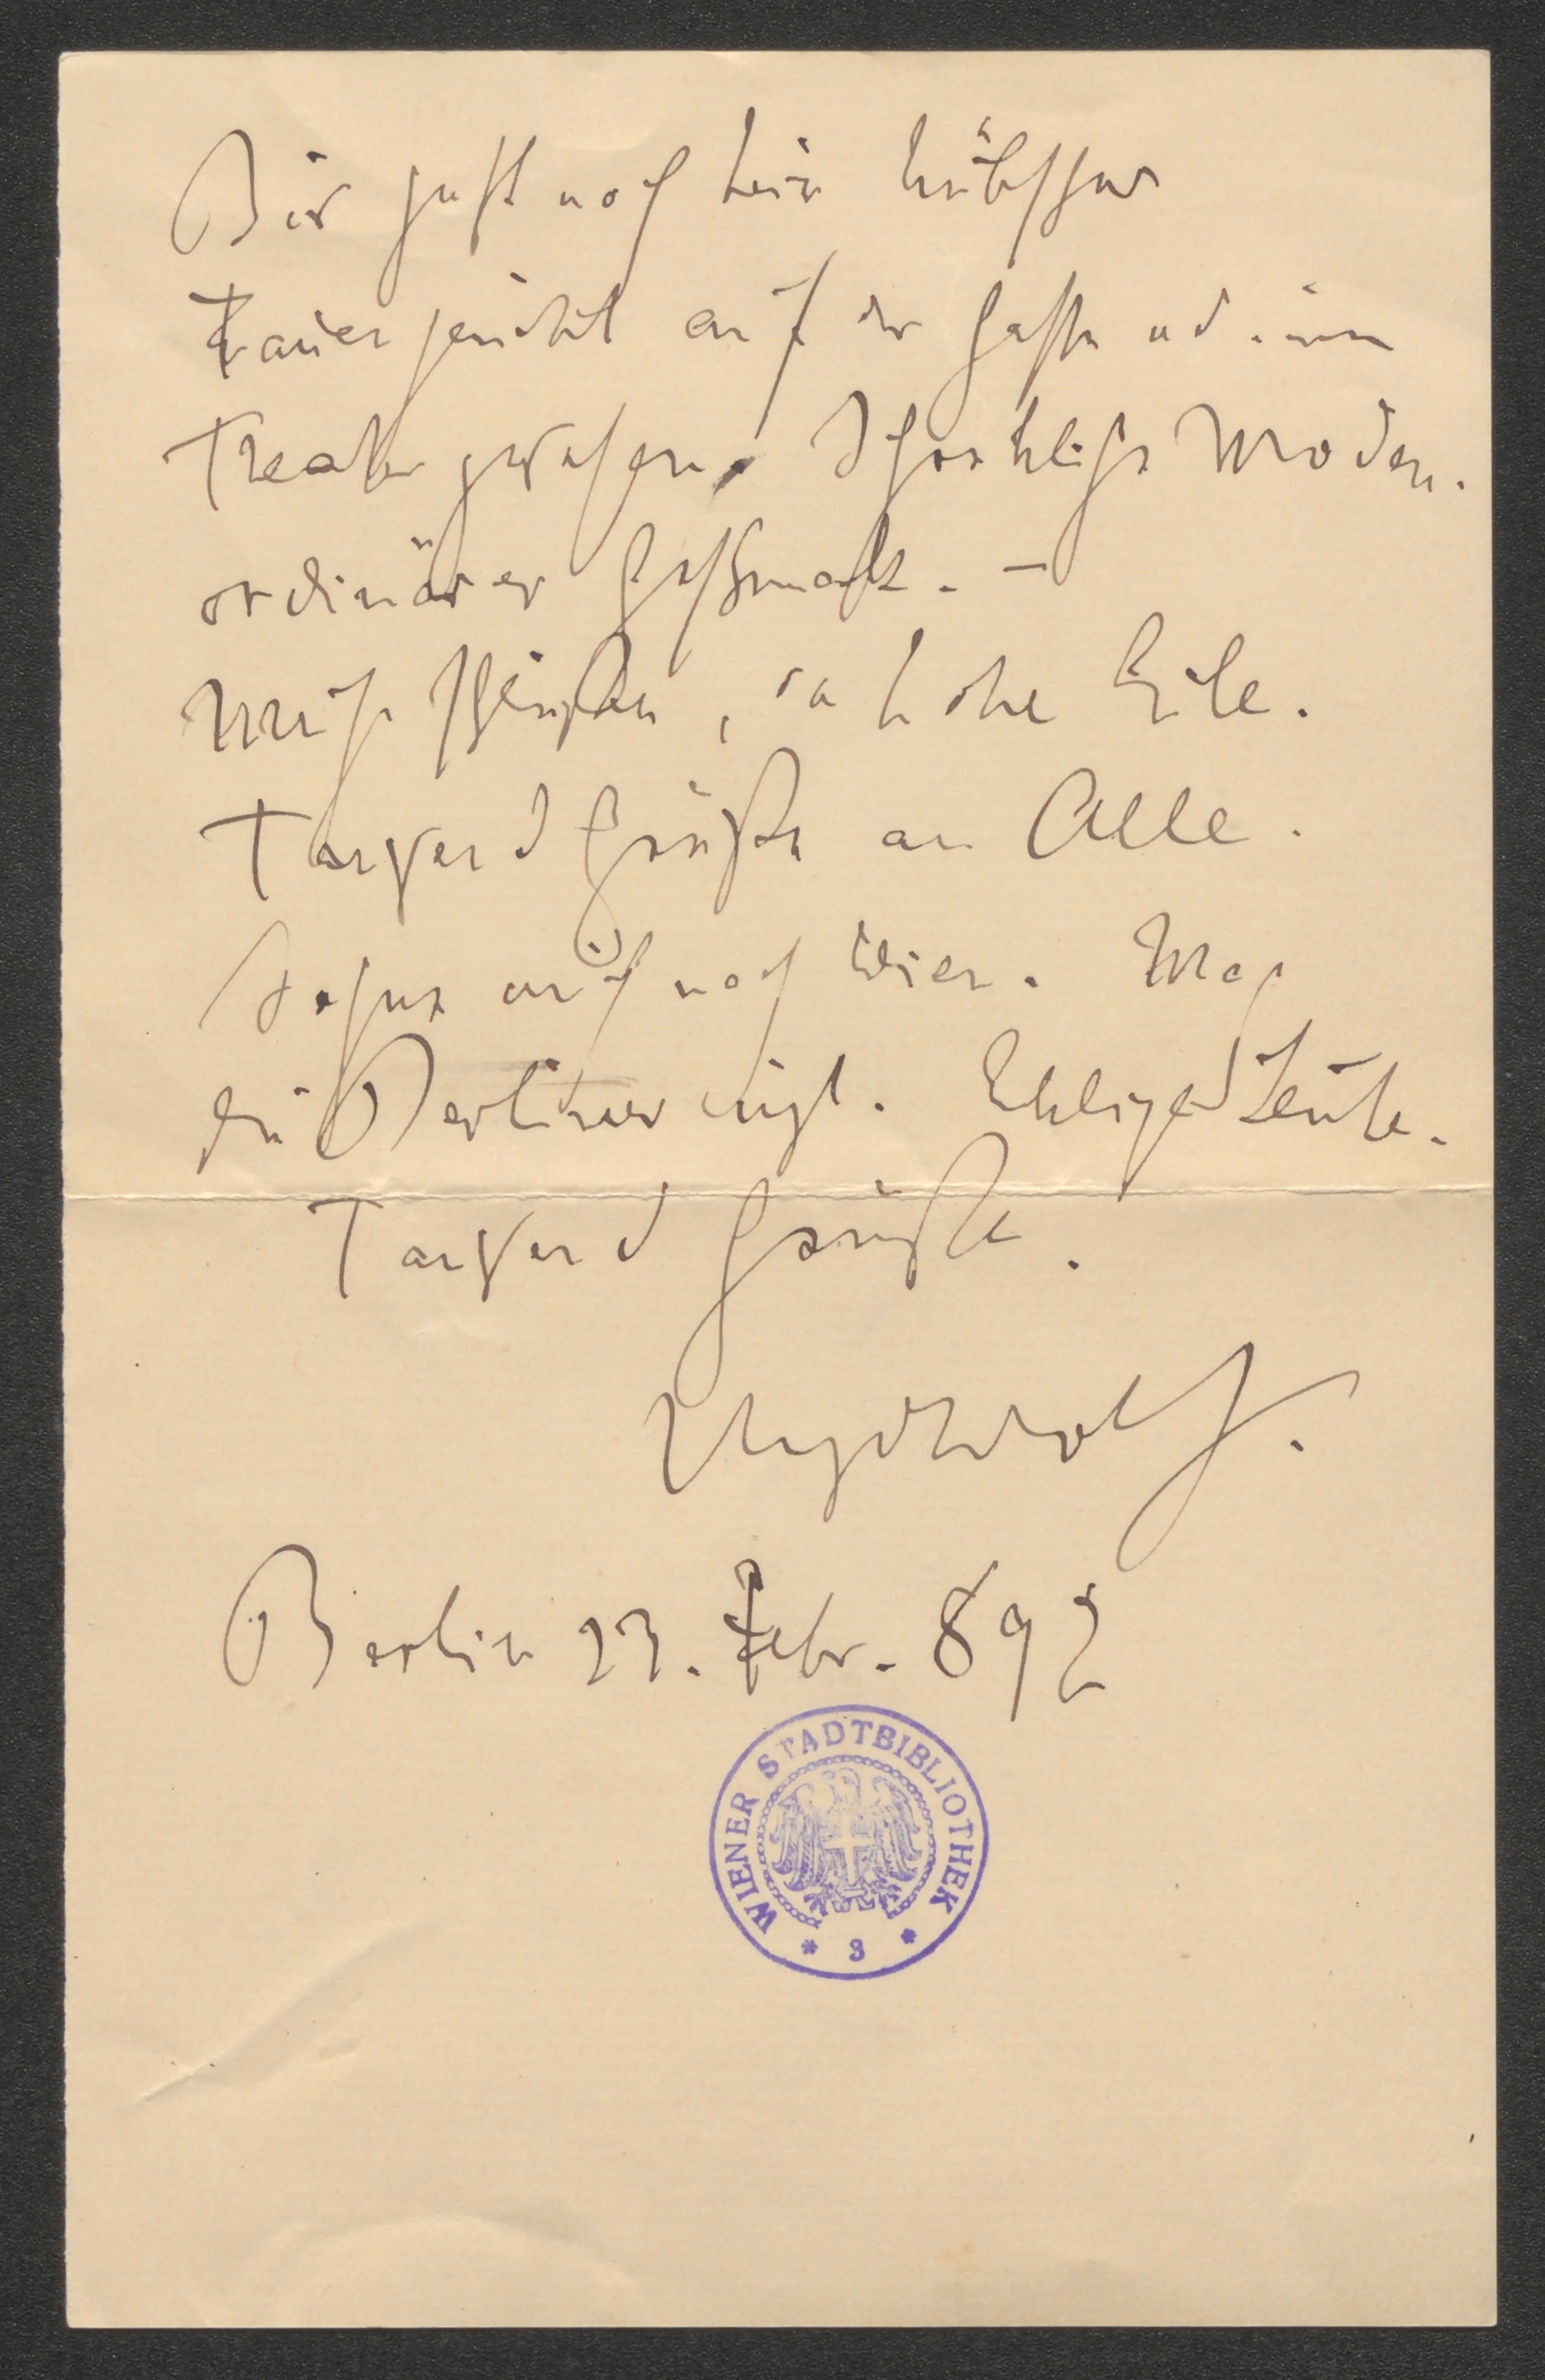 Bis jetzt noch kein hübsches
Frauengesicht auf der Gasse und im
Theater gesehen. Schreckliche Moden.
ordinärer Geschmack. –
Muß schließen, da hohe Eile.
Tausend Grüße an Alle.
Sehne mich nach Wien. Mag
die Berliner nicht. Eklige Leute.
Tausend Grüße.
Hugo Wolf.
Berlin 23. Febr. 892
WIENER STADTBIBLIOTHEK
* 3 *